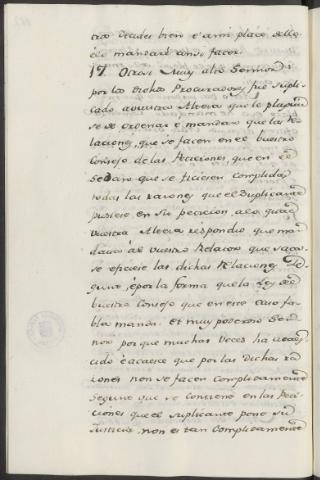 tros decides bien e a mi place dello
è lo mandaré ansi facer.
17. Otrosi Muy alto Sennor:
por los dichos Procuradores fué supli-
cado a vuestra Alteza que le plugui-
se de ordenar è mandar que las Re-
laciones, que se facen en el buestro
Consejo de las Peticiones, que en él
se daran que se ficiesen complidas
todas las razones que el Suplicante
pusiese en su peticion, a lo qual
vuestra Alteza respondio que man-
davais al vuestro Relator que saca-
se è ficiese las dichas Relaciones se-
gunt, è por la forma que la Ley del
buestro Consejo que en este caso fa-
bla manda. Et muy poderoso Sen-
nor por que muchas veces ha acaes-
cido è acaesce que por las dichas rela-
ciones non se facen complidamente
segunt que se contiene en las Peti-
ciones que el suplicante pone su
Justicia, non es tan complidamente